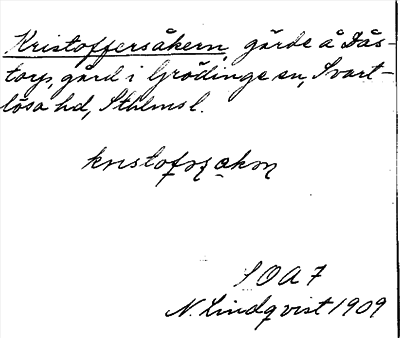 Kristoffersåkern, gärde å Dås-
torp, gård i Grödinge sn, Svart-
lösa hd, Sthlms l.
kristofrsakrn
SOA 7
N. Lindqvist 1909